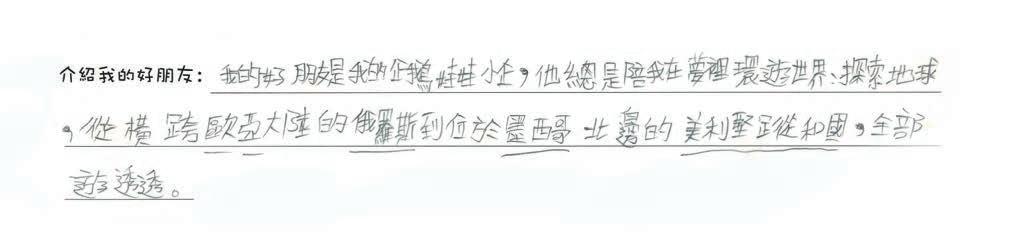 介紹我的好朋友：我的好朋友是我的企鵝娃娃小企，他總是陪我在夢裡環遊世界、探索地球
，從橫跨歐亞大陸的俄羅斯到位於墨西哥北邊的美利堅蹤和國，全部
遊透透。